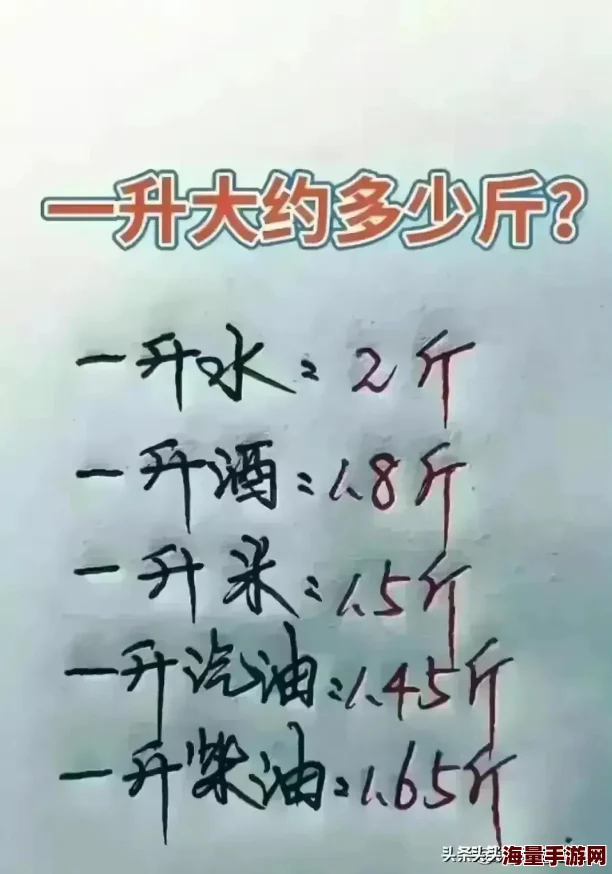 一升大约多少斤?
一升水:2斤
一升酒:1.8斤
一升米:1.5斤
一升汽油:1.45斤
一升柴油:1.65斤
头条
海量手游网